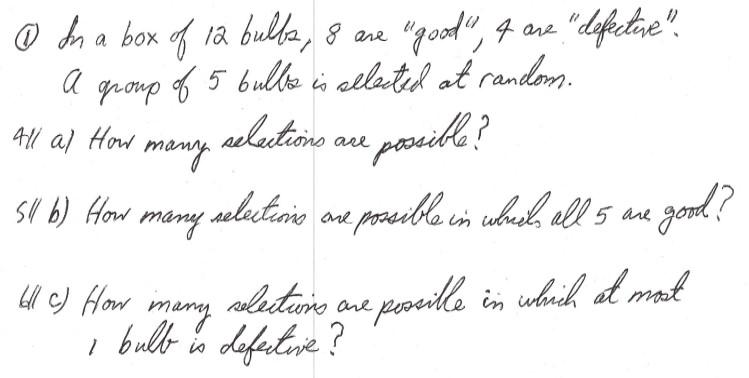 ① In a box of 12 bulbs, 8 are "good", 4 are "defective".
A group of 5 bulbs is selected at random.
4// a) How many selections are possible?
5// b) How many selections are possible in which all 5 are good?
6// c) How many selections are possible in which at most
1 bulb is defective?